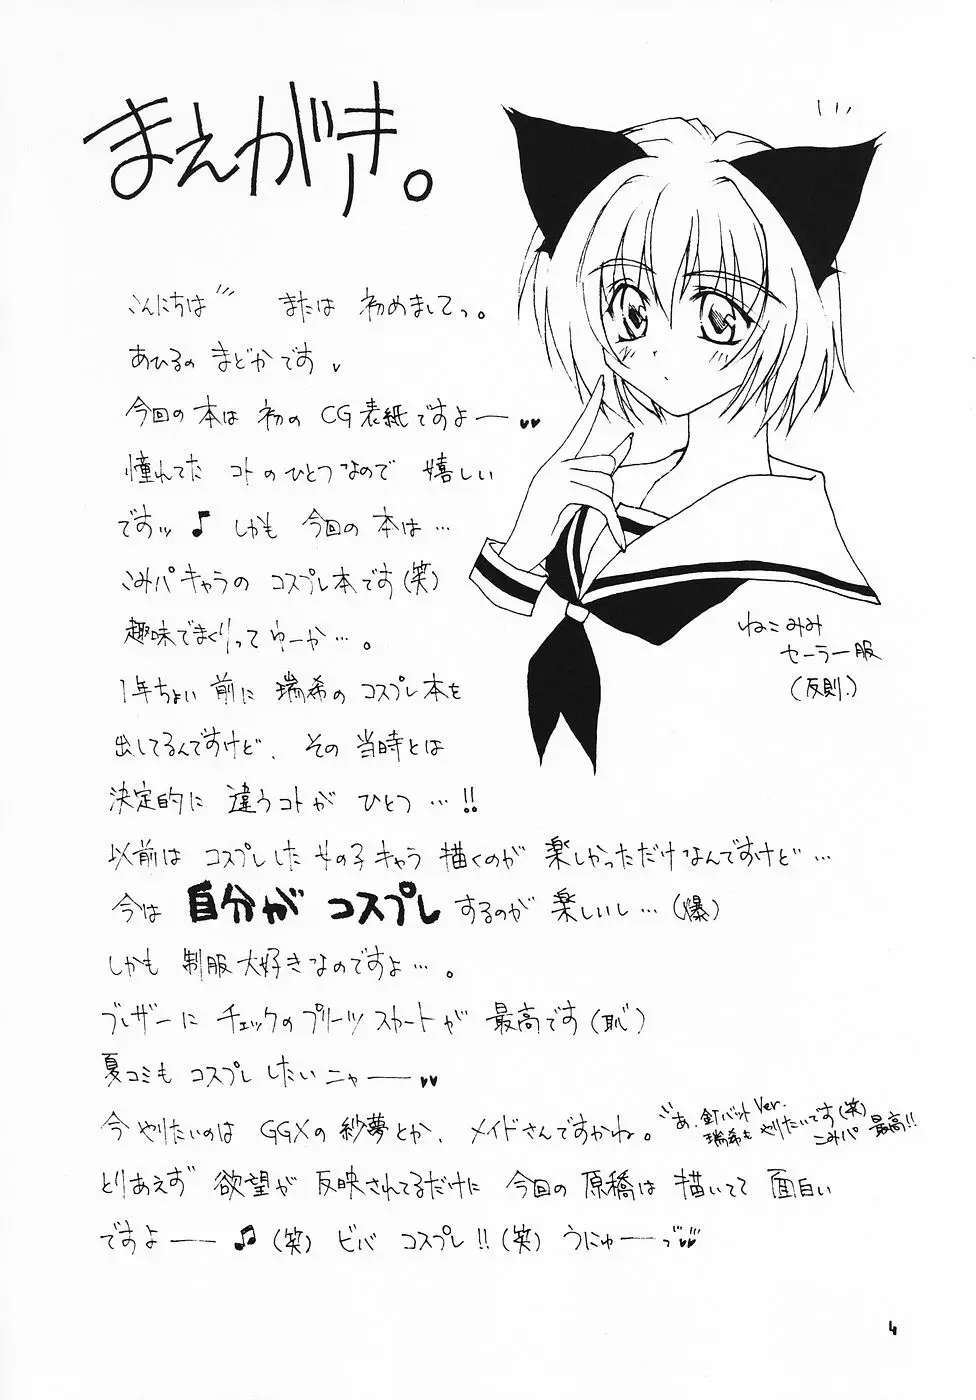 まえがき。
こんにちは〃 または 初めましてっ。
あひるの まどかです
今回の 本は 初の CG表紙ですよー♥♥
憧れてた コトのひとつなので 嬉しい
ですッ♪ しかも 今回の 本は…
こみパキャラの コスプレ本です(笑)
趣味でまくりって ゆーか…。
1年ちょい 前に 瑞希の コスプレ本を
出してるんですけど、その 当時とは
決定的に 違うコトが ひとつ…!!
以前は コスプレした 女の子キャラ 描くのが 楽しかっただけなんですけど…
今は 自分が コスプレ するのが 楽しいし…(爆)
しかも 制服大好きなのですよ…。
ブレザーに チェックのプリーツ スカートが 最高です(恥)
夏コミも コスプレ したいニャー♥♥
今 やりたいのは GGXの 紗夢とか、メイドさんですかね。
あ、釘バット Ver.
瑞希も やりたいです(笑)
こみパ 最高!!
とりあえず 欲望が 反映されてるだけに 今回の 原稿は 描いてて 面白い
ですよー♫(笑) ビバ コスプレ!!(笑) うにゅーっ♥♥
ねこみみ
セーラー服
(反則。)
4